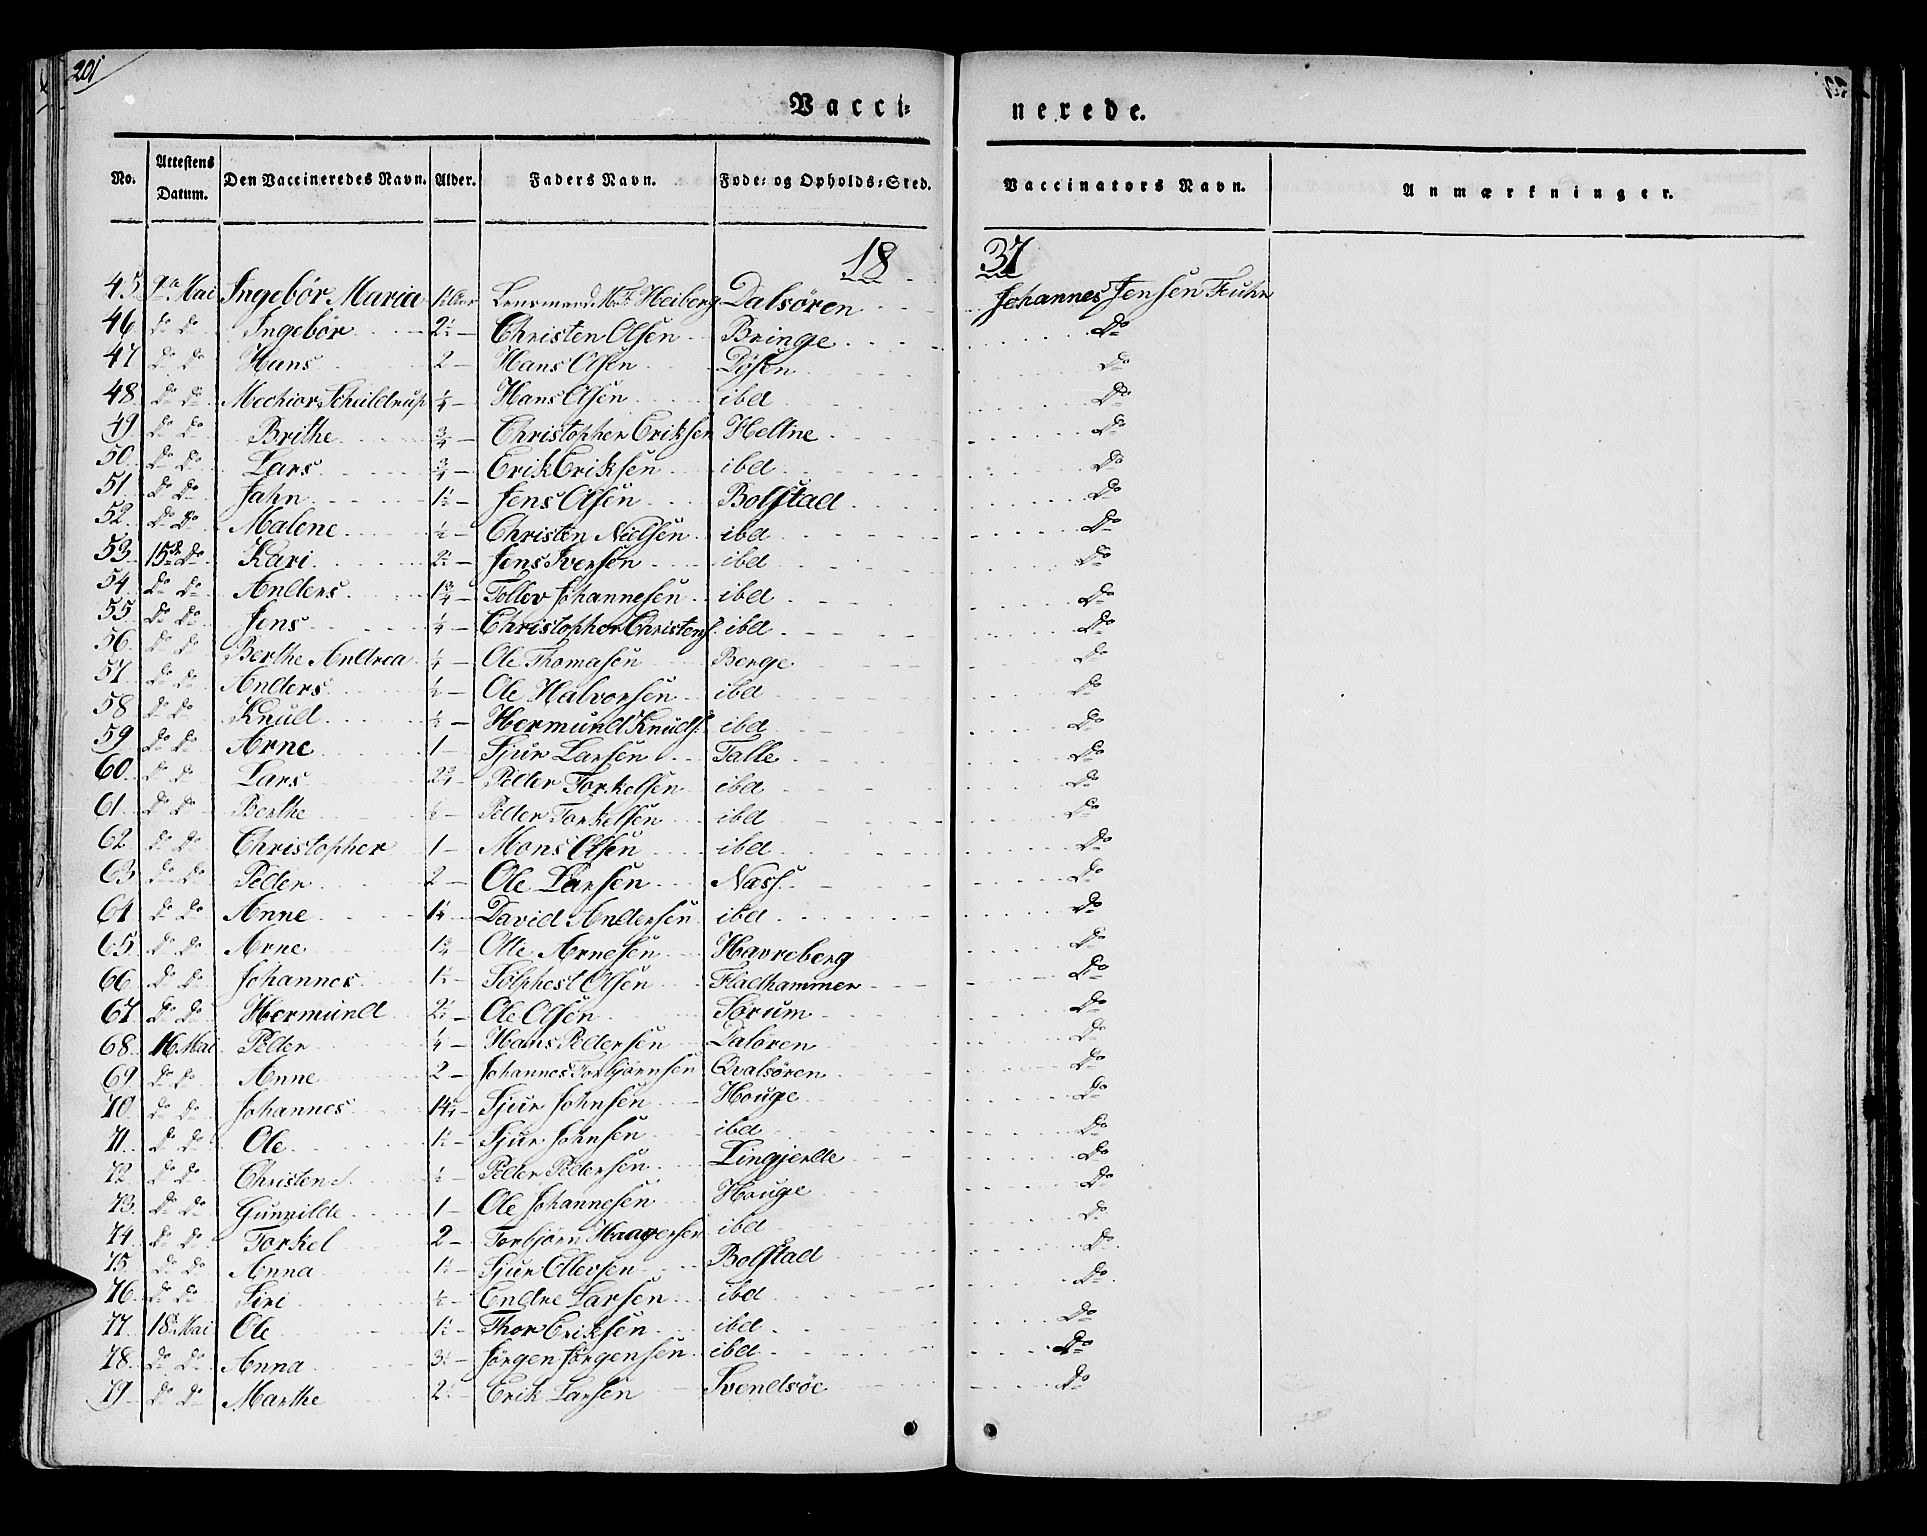 201
Vacci= nerede.
No. Attestens Datum. Den Vaccineredes Navn. Alder. Faders Navn. Føde= og Opholds=Sted. Vaccinators Navn. Anmærkninger.
18 37
45. Mai Ingebór Maria Lensmand Heiberg Dalsören Johannes Jensen Fuhr
46 do do Ingebór 2½ Christen Olsen Bringe do
47 do do Hans 2 Hans Olsen Dösen do
48. do do Mechior Schildrup ¼ Hans Olsen ibd do
49 do do Brithe ¾ Christopher Eriksen Heltne do
50. do do Lars ¾ Erik Eriksen ibd do
51. do do Jahn 1½ Jens Olsen Bolstad do
52. do do Malene ½ Christen Nielsen ibd do
53 15de do Kari Jens Iversen ibd do
54. do do Anders 1¾ Tollev Johannesen ibd do
55 do do Jens ¼ Christopher Christens. ibd do
56. do do Berthe Andrea ¼ Ole Thomasen Berge do
57. do do Anders ½ Ole Halvorsen ibd do
58 do do Knud ½ Hermund Knuds. ibd do
59 do do Arne 1 Sjur Larsen Talle do
60. do do Lars 2¾ Peder Torkelsen ibd do
61 do do Berthe Peder Torkelsen ibd do
62 do do Christopher 1 Mons Olsen ibd do
63 do do Peder 2 Ole Larsen Næss. do
64 do do Anne 1¼ David Andersen ibd do
65. do do Arne 1¾ Olle Arnesen Havreberg do
66 do do Johannes 1½ Sölphest Olsen Fladhammer do
67 do do Hermund 2½ Ole Olsen Sorum do
68 16 Mai Peder ¼ Hans Pedersen Dalören do
69 do do Anne 2 Johannes Torbjörnsen Qvalsören do
70 do do Johannes 14½ Sjur Johnsen Houge do
71. do do Ole 1½ Sjur Johnsen ibd do
72 do do Christen ½ Peder Pedersen Lingjerde do
73. do do Gunnilde 1 Ole Johannesen Houge do
74 do do Torkel 2 Torbjörn Haagensen ibd do
75 do do Anna 1½ Sjur Ollevsen Bolstad do
76 do do Siri ½ Endre Larsen ibd do
77 18 Mai Ole 1½ Thor Eriksen ibd do
78. do do Anna 3½ Jörgen Jörgensen ibd do
79 do do Marthe 2 Erik Larsen Svendsöe do